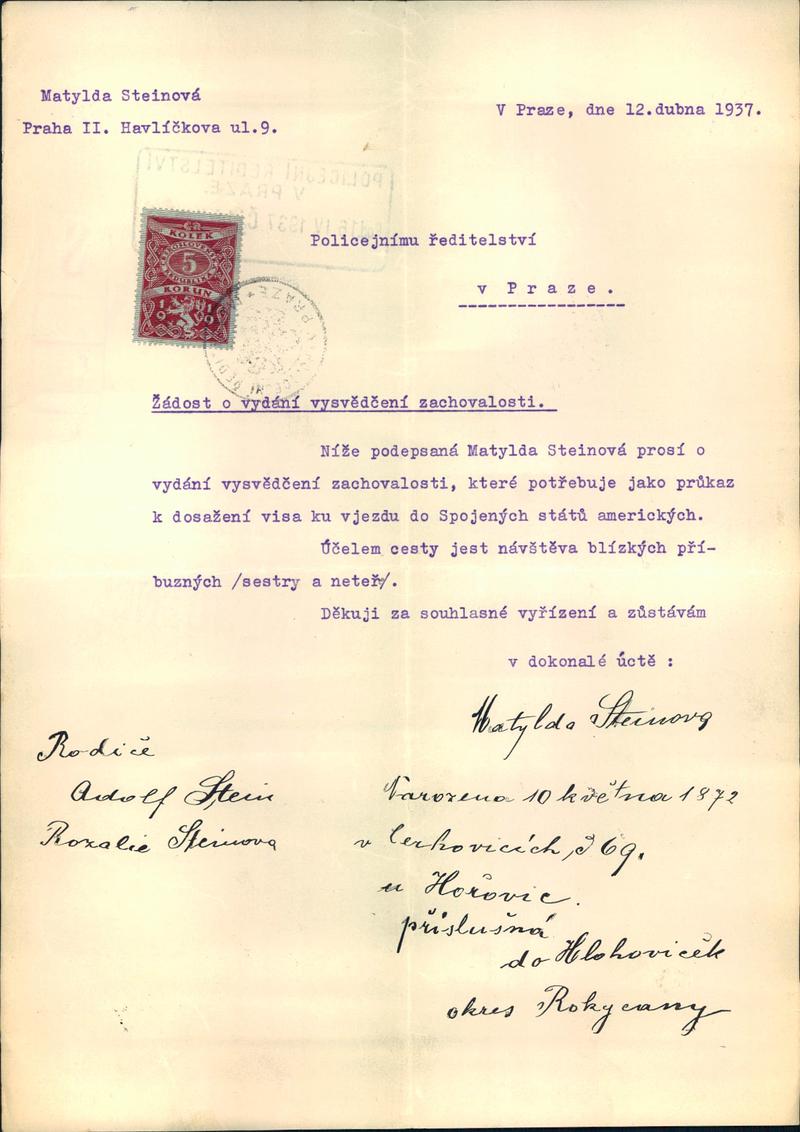 Matylda Steinová
Praha II. Havlíčkova ul.9.
V Praze, dne 12.dubna 1937.
POLICEJNÍ ŘEDITELSTVÍ
V PRAZE.
16 IV 1937
KOLEK
5
KORUN
1919
V PRAZE
Policejnímu ředitelství
v Praze.
Žádost o vydání vysvědčení zachovalosti.
Níže podepsaná Matylda Steinová prosí o
vydání vysvědčení zachovalosti, které potřebuje jako průkaz
k dosažení visa ku vjezdu do Spojených států amerických.
Účelem cesty jest návštěva blízkých pří-
buzných /sestry a neteř/.
Děkuji za souhlasné vyřízení a zůstávám
v dokonalé úctě :
Matylda Steinova
Rodiče
Adolf Stein
Rozalie Steinova
Narozena 10 května 1872
v Cerhovicích, 69.
u Hořovic.
příslušná
do Hlohoviček
okres Rokycany